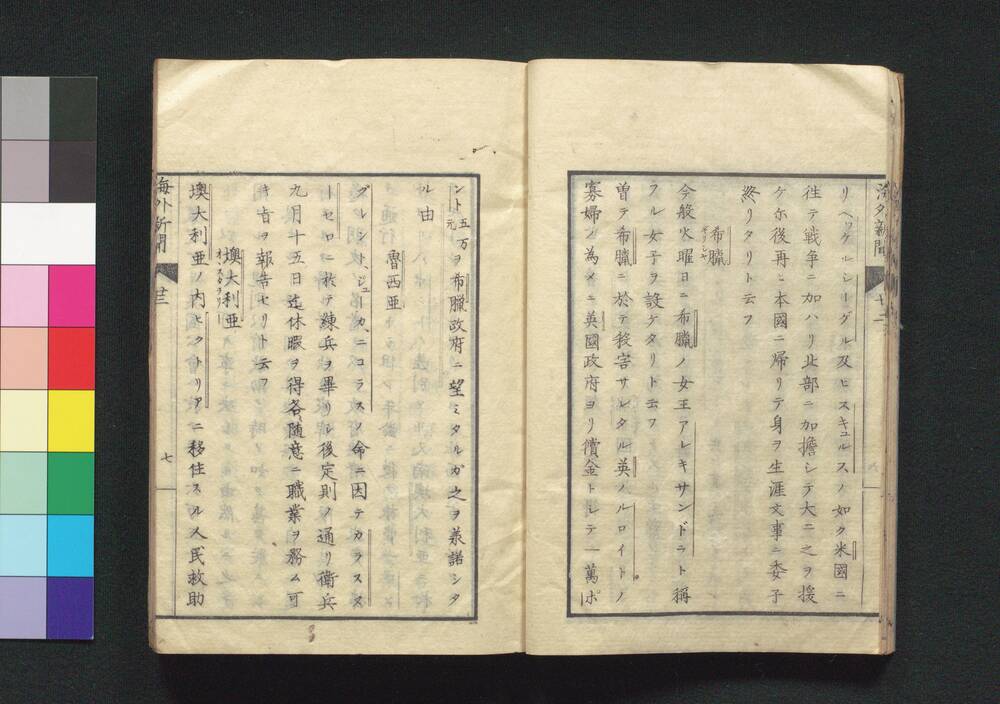 リヘッケルシーグル及ヒスキュルスノ如ク米國ニ
往テ戦争ニ加ハリ北部ニ加擔シテ大ニ之ヲ援
ケ尓後再ヒ本國ニ帰リテ身ヲ生涯文事ニ委子
終リタリト云フ
希臘
ギリシヤ
今般火曜日ニ希臘ノ女王アレキサンドラト稱
フル女子ヲ設ケタリト云フ
曽テ希臘ニ於テ殺害サレタル英ノルロイトノ
寡婦ノ為メニ英國政府ヨリ償金トレテ一萬ポ
ント五万元ヲ希臘政府ニ望ミタルカ之ヲ兼諾シタ
ル由
魯西亜
グレント、ジュカ、ニコラスノ命ニ因テカラスス
ーセロニ於テ練兵ヲ畢リシ後定則ノ通リ衛兵
九月十五日迄休暇ヲ得各随意ニ職業ヲ務ム可
キ旨ヲ報告セリト云フ
澳大利亜
オースタラリー
澳大利亜ノ内ヒクトリアニ移住スル人民救助
海外新聞
廿三
七
海外新聞